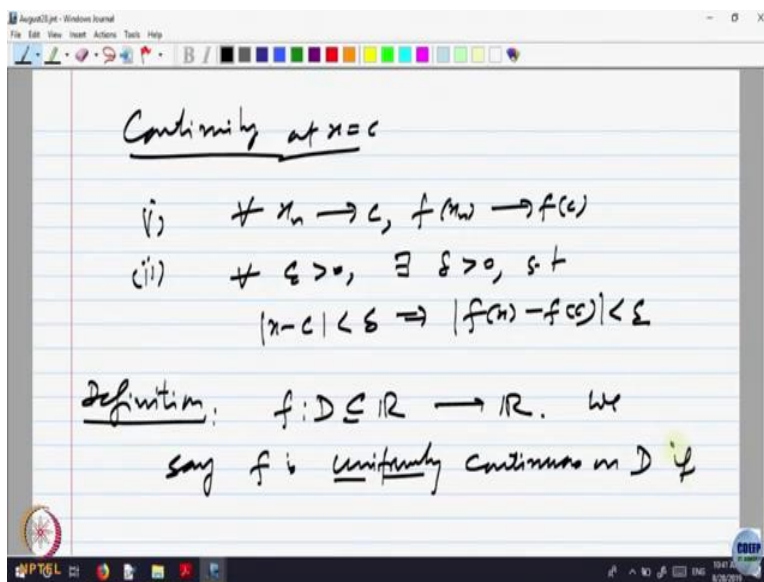 August28.jnt - Windows Journal
File Edit View Insert Actions Tools Help
B I
Continuity at x=c
(i) ∀ xₙ → c, f(xₙ) → f(c)
(ii) ∀ ε>0, ∃ δ>0, s.t
|x-c|<δ ⇒ |f(x)-f(c)|<ε
Definition: f: D ⊆ ℝ → ℝ. We
say f is uniformly continuous on D if
NPTEL
CDEEP
ENG
8/28/2019